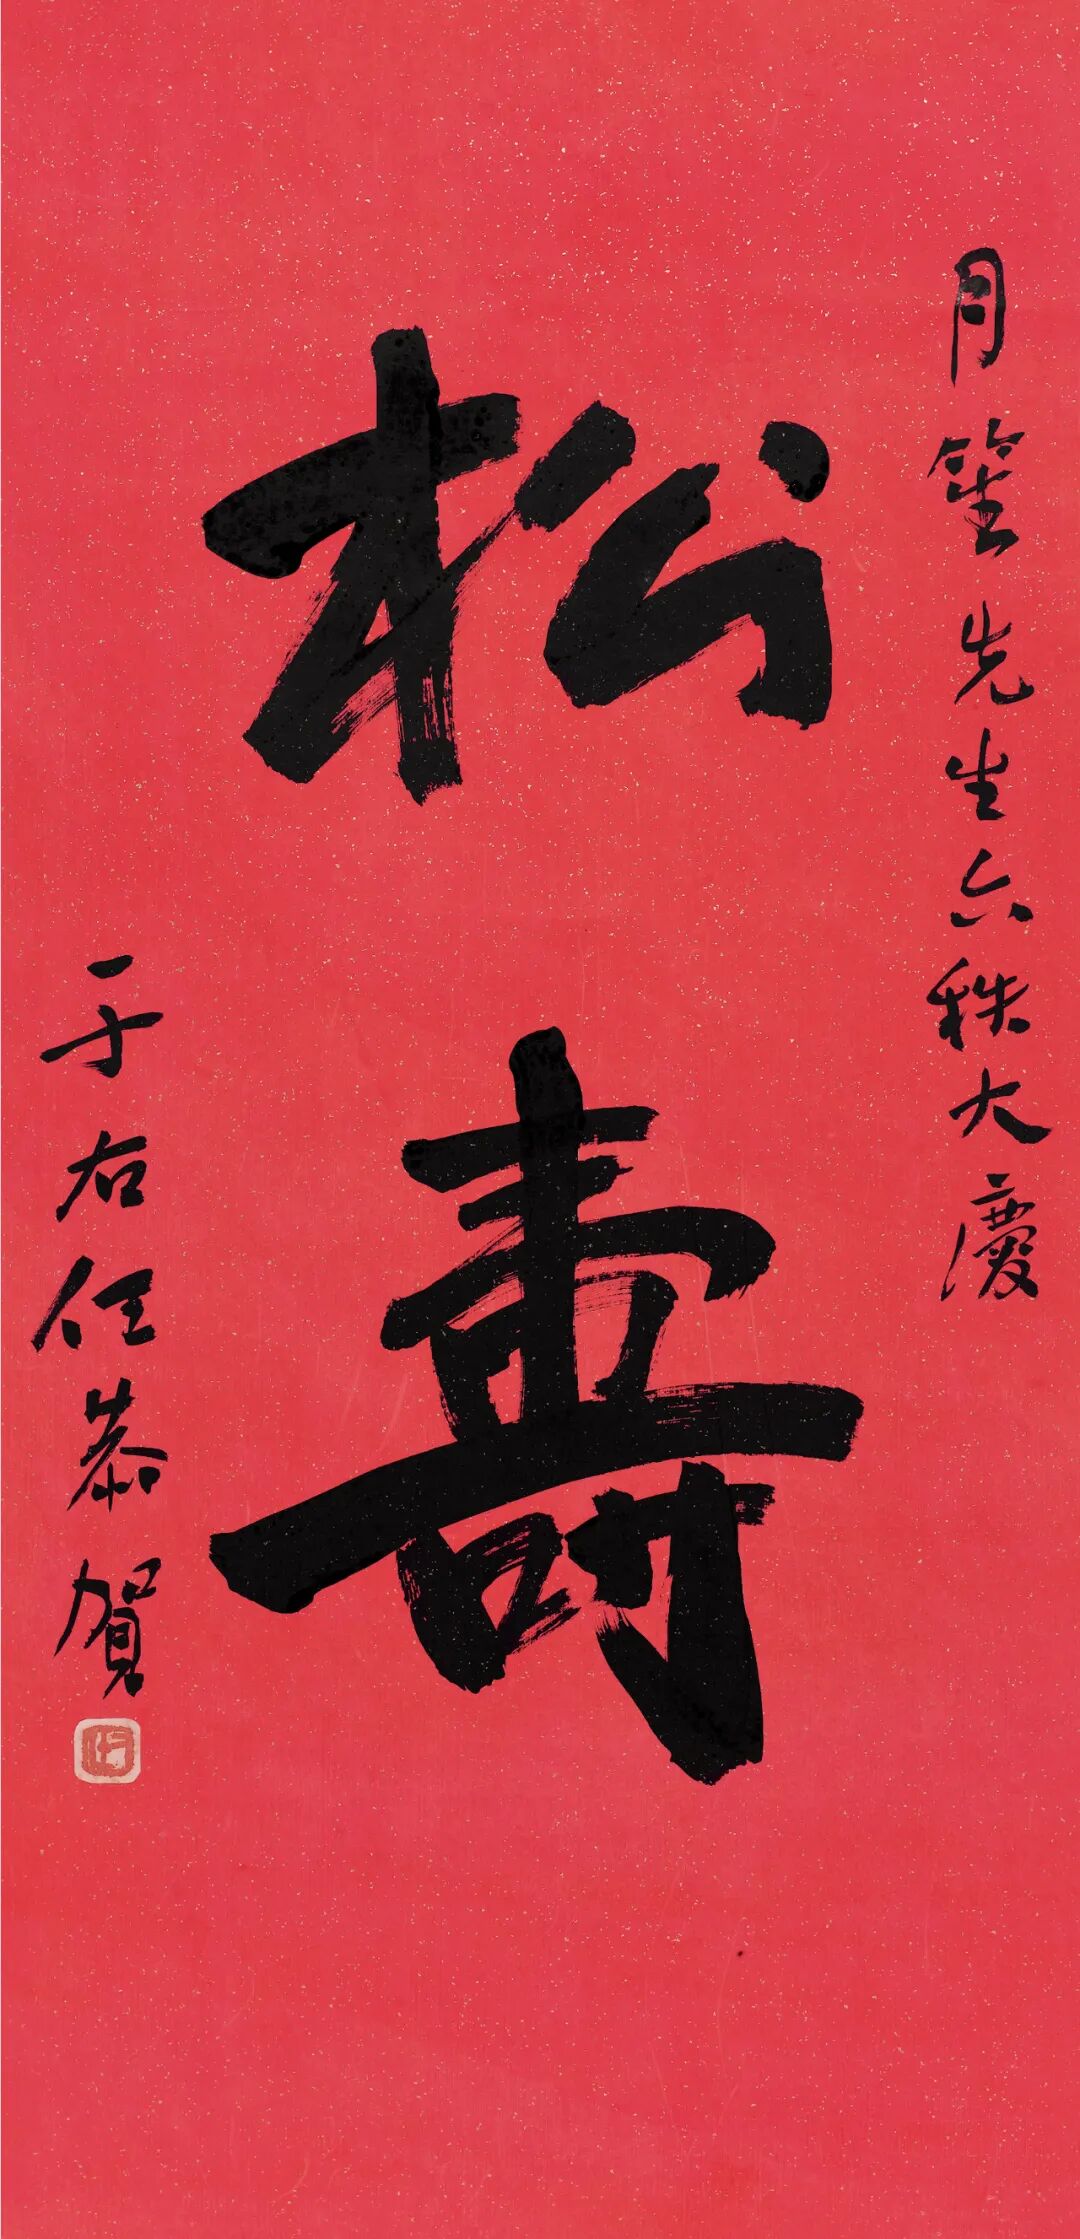 月笙先生六秩大慶
松壽
于右任恭賀